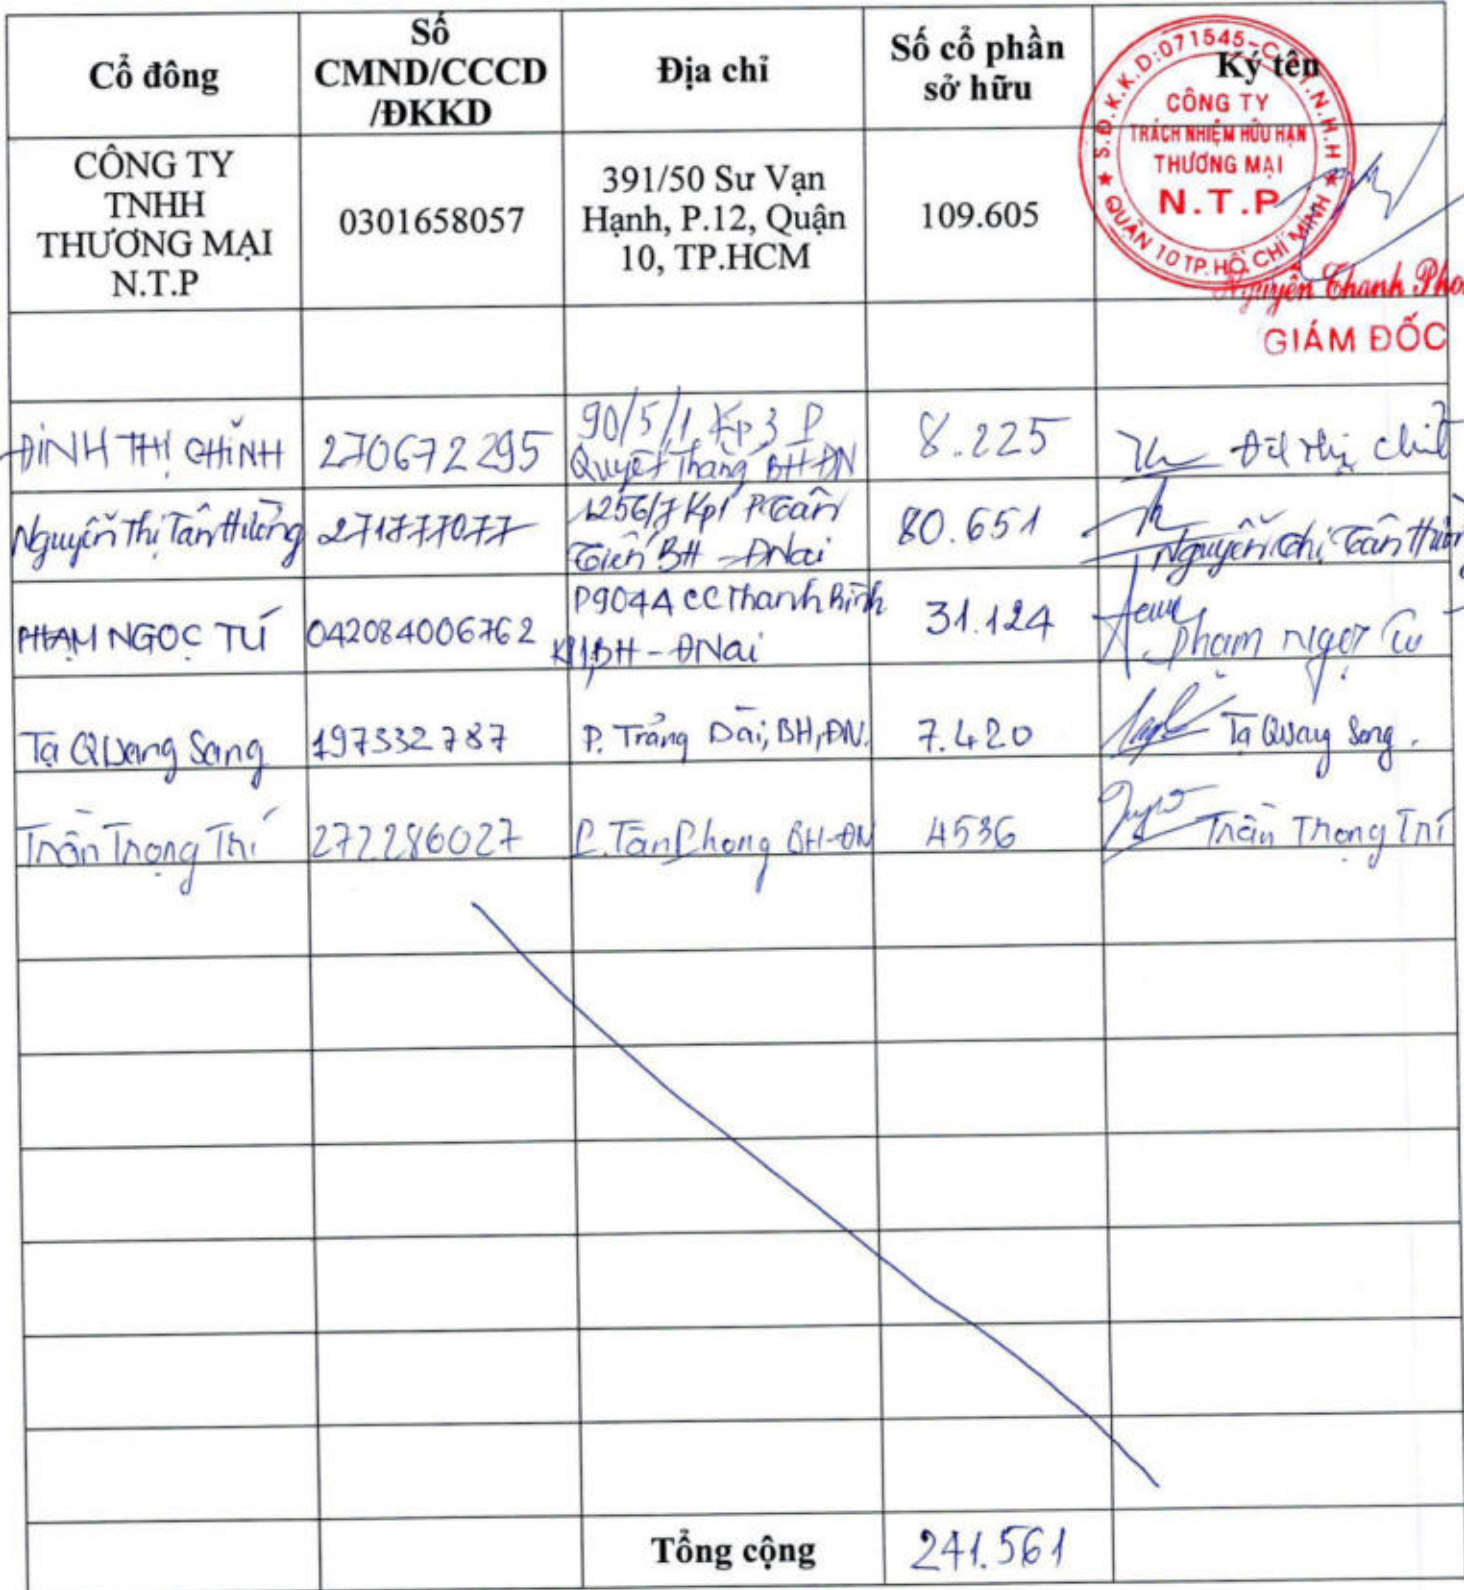 Cổ đông
Số
CMND/CCCD
/ĐKKD
Địa chỉ
Số cổ phần
sở hữu
Ký tên
CÔNG TY
TNHH
THƯƠNG MẠI
N.T.P
0301658057
391/50 Sư Vạn
Hạnh, P.12, Quận
10, TP.HCM
109.605
S.Đ.K.K.D:071545-C.T.T.N.H.H
CÔNG TY
TRÁCH NHIỆM HỮU HẠN
THƯƠNG MẠI
N.T.P
QUẬN 10 TP. HỒ CHÍ MINH
Nguyễn Thanh
GIÁM ĐỐC
ĐINH THỊ CHÍNH
270672295
90/5/1 Kp3 P
Quyết Thắng BH-ĐN
8.225
Nguyễn Thị Tân Hương
271777077
1256/7 Kp1 P. Tân
Tiến BH - ĐNai
80.651
Nguyễn Thị Tân
PHẠM NGỌC TÚ
042084006762
P904A CC Thanh Bình
BH - ĐNai
31.124
Phạm Ngọc Tú
Tạ Quang Sang
197332787
P. Trảng Dài, BH, ĐN.
7.420
Tạ Quang Sang.
Trần Trọng Trí
272286027
P. Tân Phong BH-ĐN
4536
Trần Trọng Trí
Tổng cộng
241.561